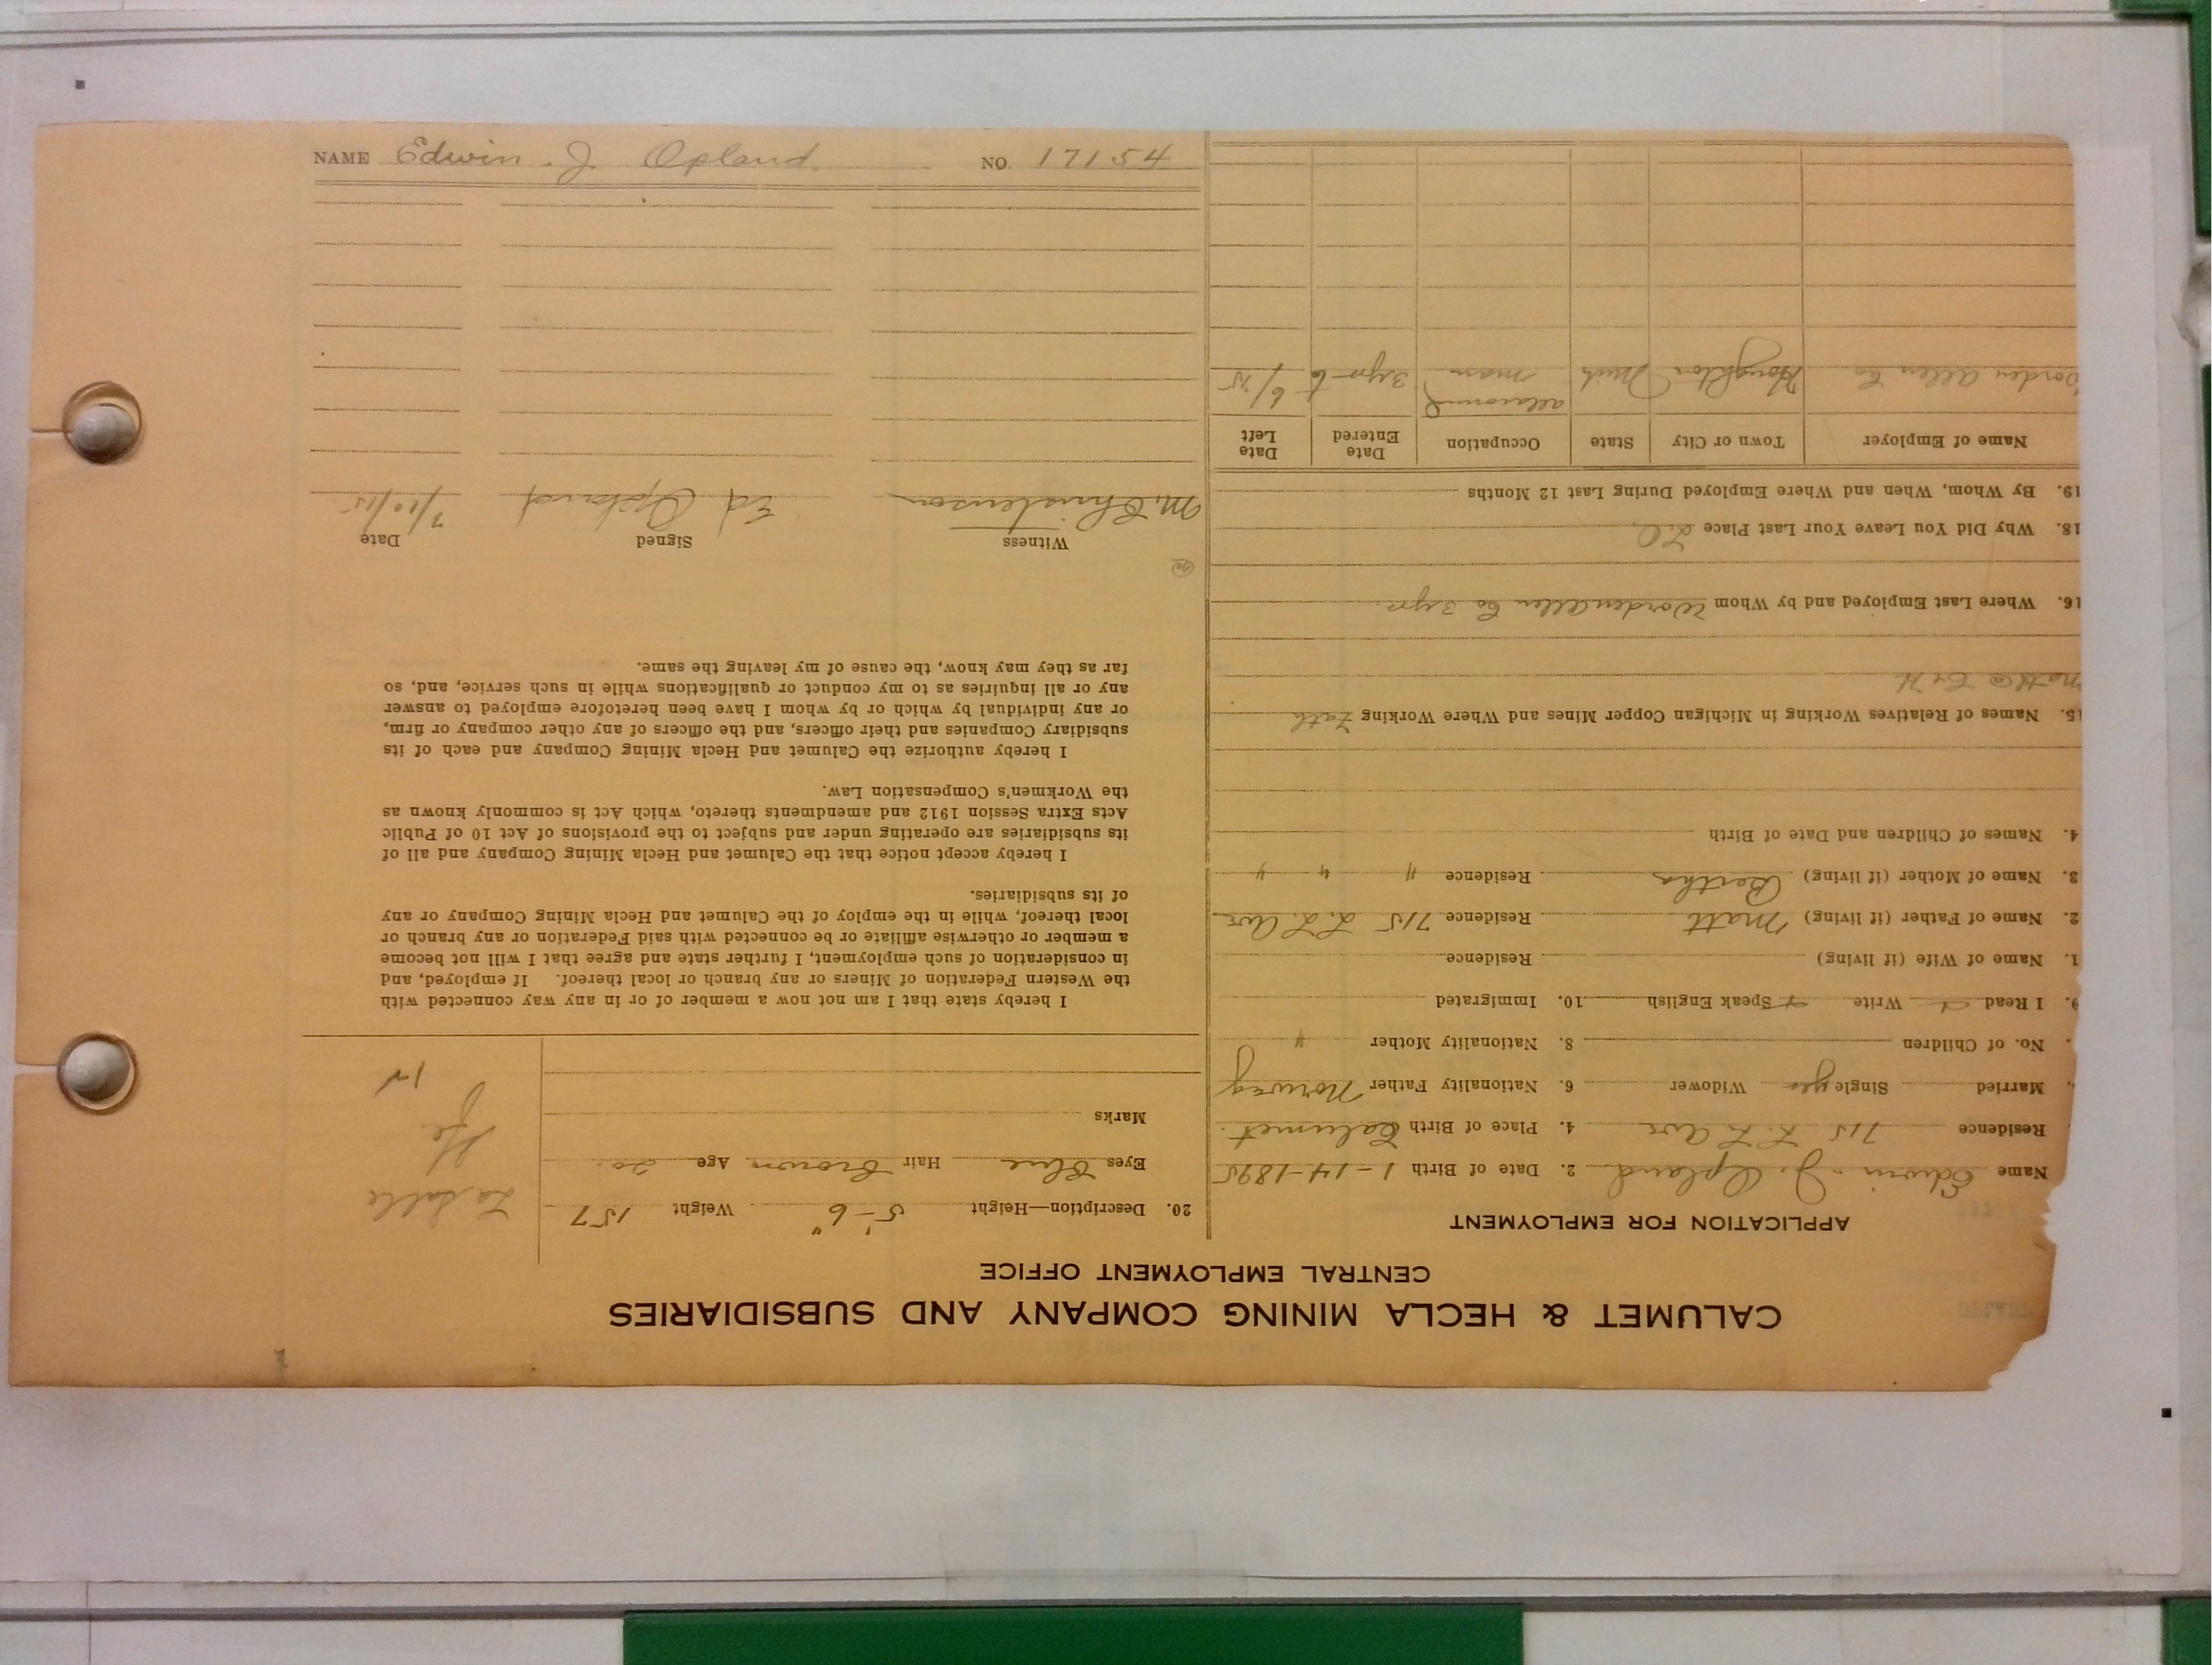 NAME Edwin J Opland NO. 17154
CALUMET & HECLA MINING COMPANY AND SUBSIDIARIES
CENTRAL EMPLOYMENT OFFICE
APPLICATION FOR EMPLOYMENT
Name Edwin J. Opland 2. Date of Birth 1-14-1895
Residence 715 L. L. Ave 4. Place of Birth Calumet.
Married Single yes Widower 6. Nationality Father Norway
No. of Children 8. Nationality Mother "
9. I Read Write Speak English 10. Immigrated
1. Name of Wife (if living) Residence
2. Name of Father (if living) Matt Residence 715 L. L. Ave
3. Name of Mother (if living) Bertha Residence " " "
4. Names of Children and Date of Birth
15. Names of Relatives Working in Michigan Copper Mines and Where Working Fath
Matt @ C & H
16. Where Last Employed and by Whom Worden Allen Co 3 yrs.
18. Why Did You Leave Your Last Place
19. By Whom, When and Where Employed During Last 12 Months
Name of Employer Town or City State Occupation Date Entered Date Left
Worden Allen Co Houghton Mich man 3 yrs 6/15
20. Description—Height 5'-6" Weight 157
Eyes Blue Hair Brown Age 20.
Marks
La Salle
I hereby state that I am not now a member of or in any way connected with
the Western Federation of Miners or any branch or local thereof. If employed, and
in consideration of such employment, I further state and agree that I will not become
a member or otherwise affiliate or be connected with said Federation or any branch or
local thereof, while in the employ of the Calumet and Hecla Mining Company or any
of its subsidiaries.
I hereby accept notice that the Calumet and Hecla Mining Company and all of
its subsidiaries are operating under and subject to the provisions of Act 10 of Public
Acts Extra Session 1912 and amendments thereto, which Act is commonly known as
the Workmen's Compensation Law.
I hereby authorize the Calumet and Hecla Mining Company and each of its
subsidiary Companies and their officers, and the officers of any other company or firm,
or any individual by which or by whom I have been heretofore employed to answer
any or all inquiries as to my conduct or qualifications while in such service, and, so
far as they may know, the cause of my leaving the same.
Witness Signed Date
M. Christenson Ed Opland 7/20/15